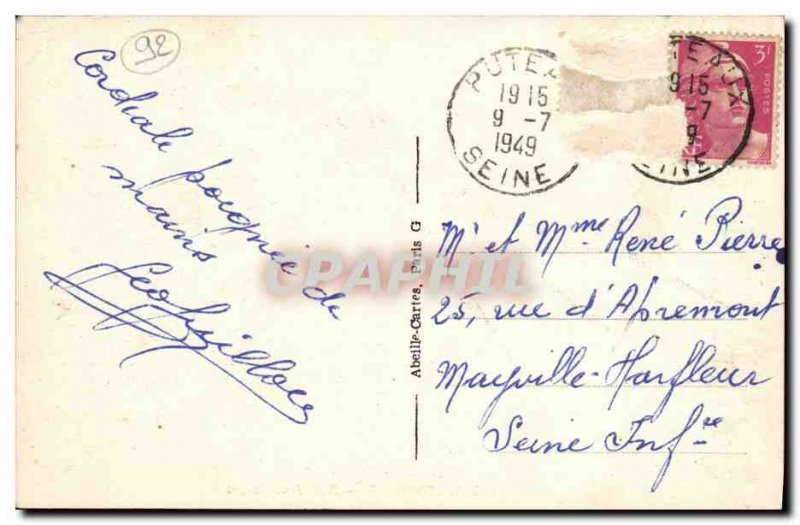 92
Cordiale poignée de
mains
PUTEAUX
19 15
9 -7
1949
SEINE
TEAUX
9 15
-7
9
EINE
3F
POSTES
CPARHIL
Abeille-Cartes, Paris G
Mr et Mme René Pierre
25, rue d'Apremont
Mayville-Harfleur
Seine Infre